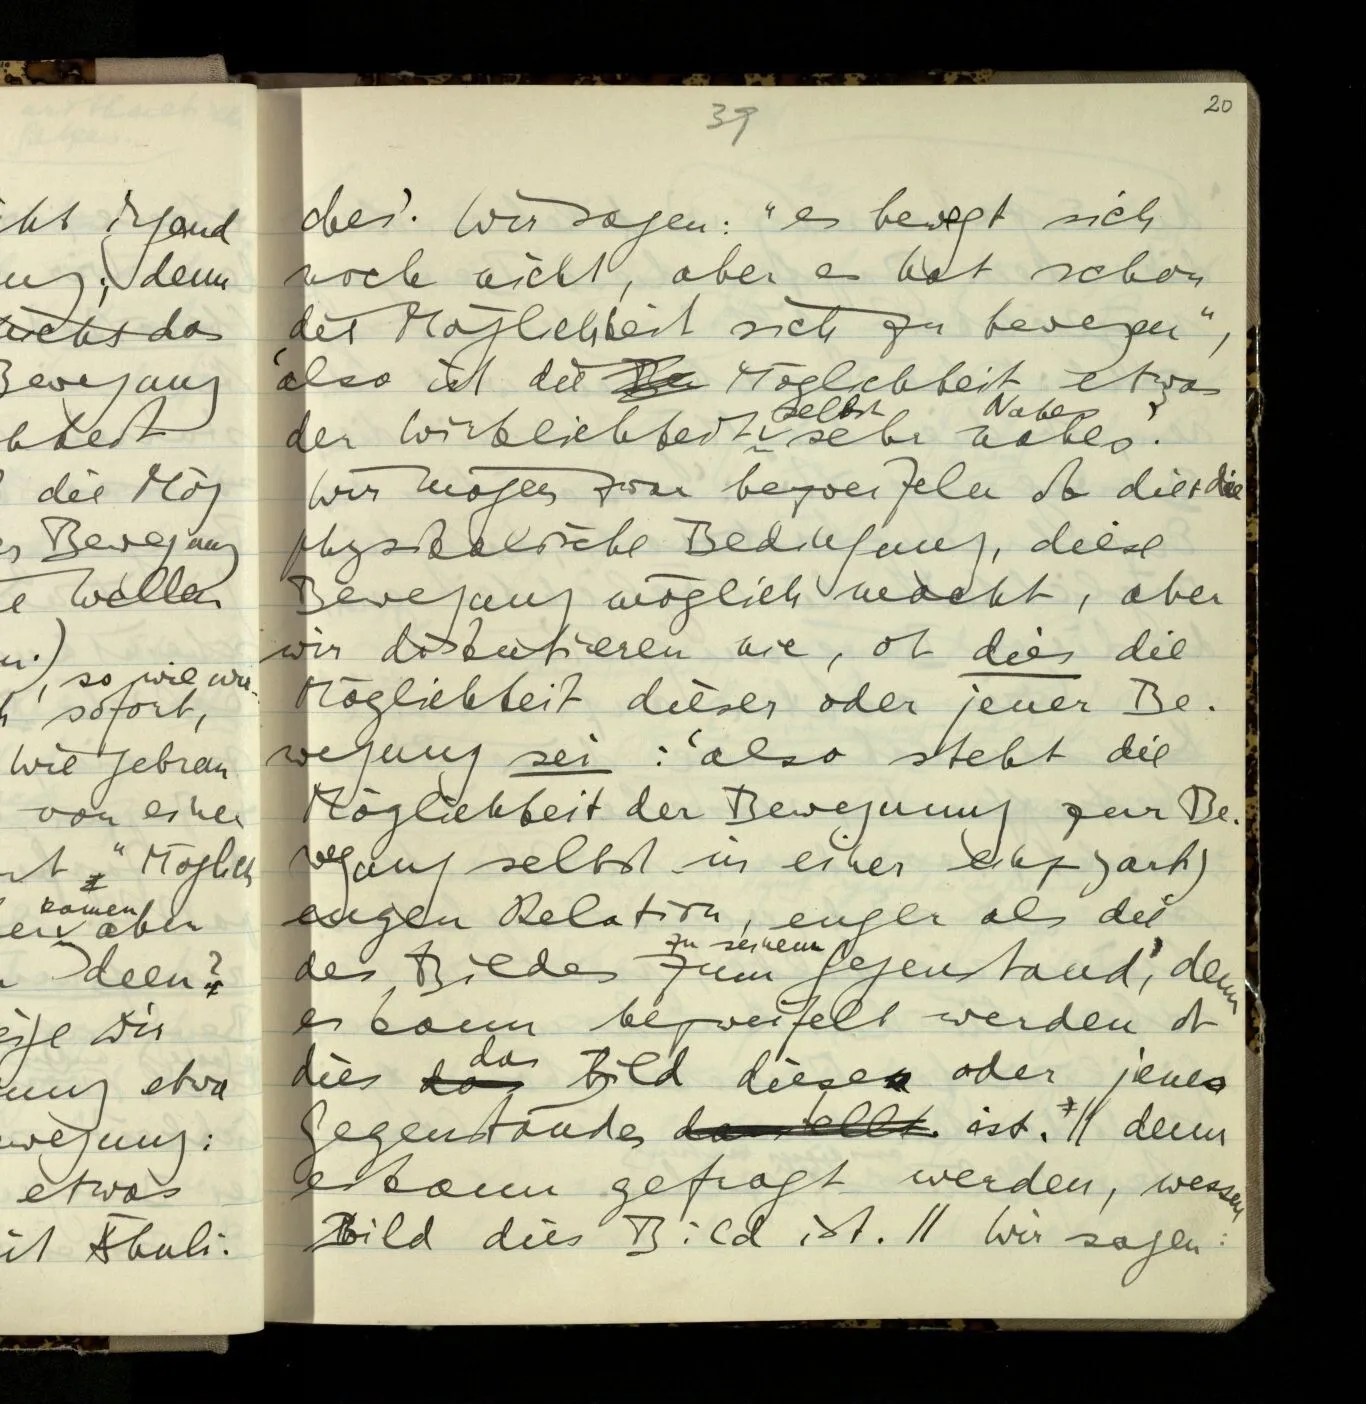 icht irgend
ung; denn
nichts das
Bewegung
chkeit
die Mög
Bewegung
Wellen
so wie wir
sofort,
wie gebrau
von einer
"Möglich
kamen
aber
Ideen?
wir
ung etwa
ewegung:
etwas
ähnli-
39
20
ches'. Wir sagen: "es bewegt sich
noch nicht, aber es hat schon
die Möglichkeit sich zu bewegen",
'also ist die Möglichkeit etwas
selbst Nahes
der Wirklichkeit sehr nahes'.
Wir mögen zwar bezweifeln ob diese
physikalische Bedingung, diese
Bewegung möglich macht, aber
wir diskutieren nie, ob dies die
Möglichkeit dieser oder jener Be-
wegung sei: 'also steht die
Möglichkeit der Bewegung zur Be-
wegung selbst in einer einzigartig
engen Relation, enger als die
zu seinem
des Bildes zum Gegenstand', denn
es kann bezweifelt werden ob
das
dies das Bild dieses oder jenes
Gegenstandes darstellt ist. // denn
es kann gefragt werden, wessen
Bild dies Bild ist. // Wir sagen: